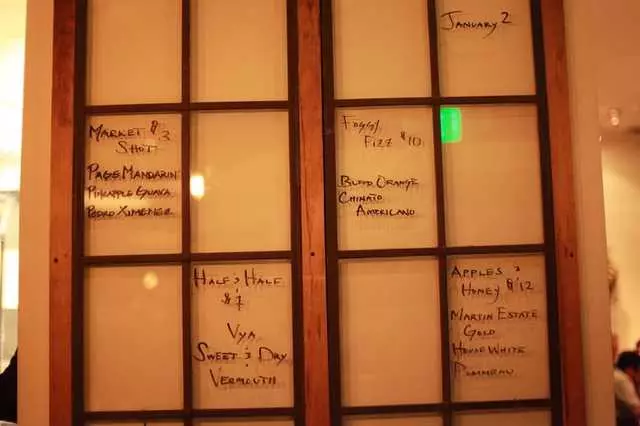 January 2
Market $3
Shot
Page Mandarin
Pineapple Guava
Pedro Ximenez
Foggy
Fizz $10
Blood Orange
Chinato
Americano
Half & Half
Vya
Sweet & Dry
Vermouth
Apples &
Honey $12
Martin Estate
Gold
House White
Pommeau